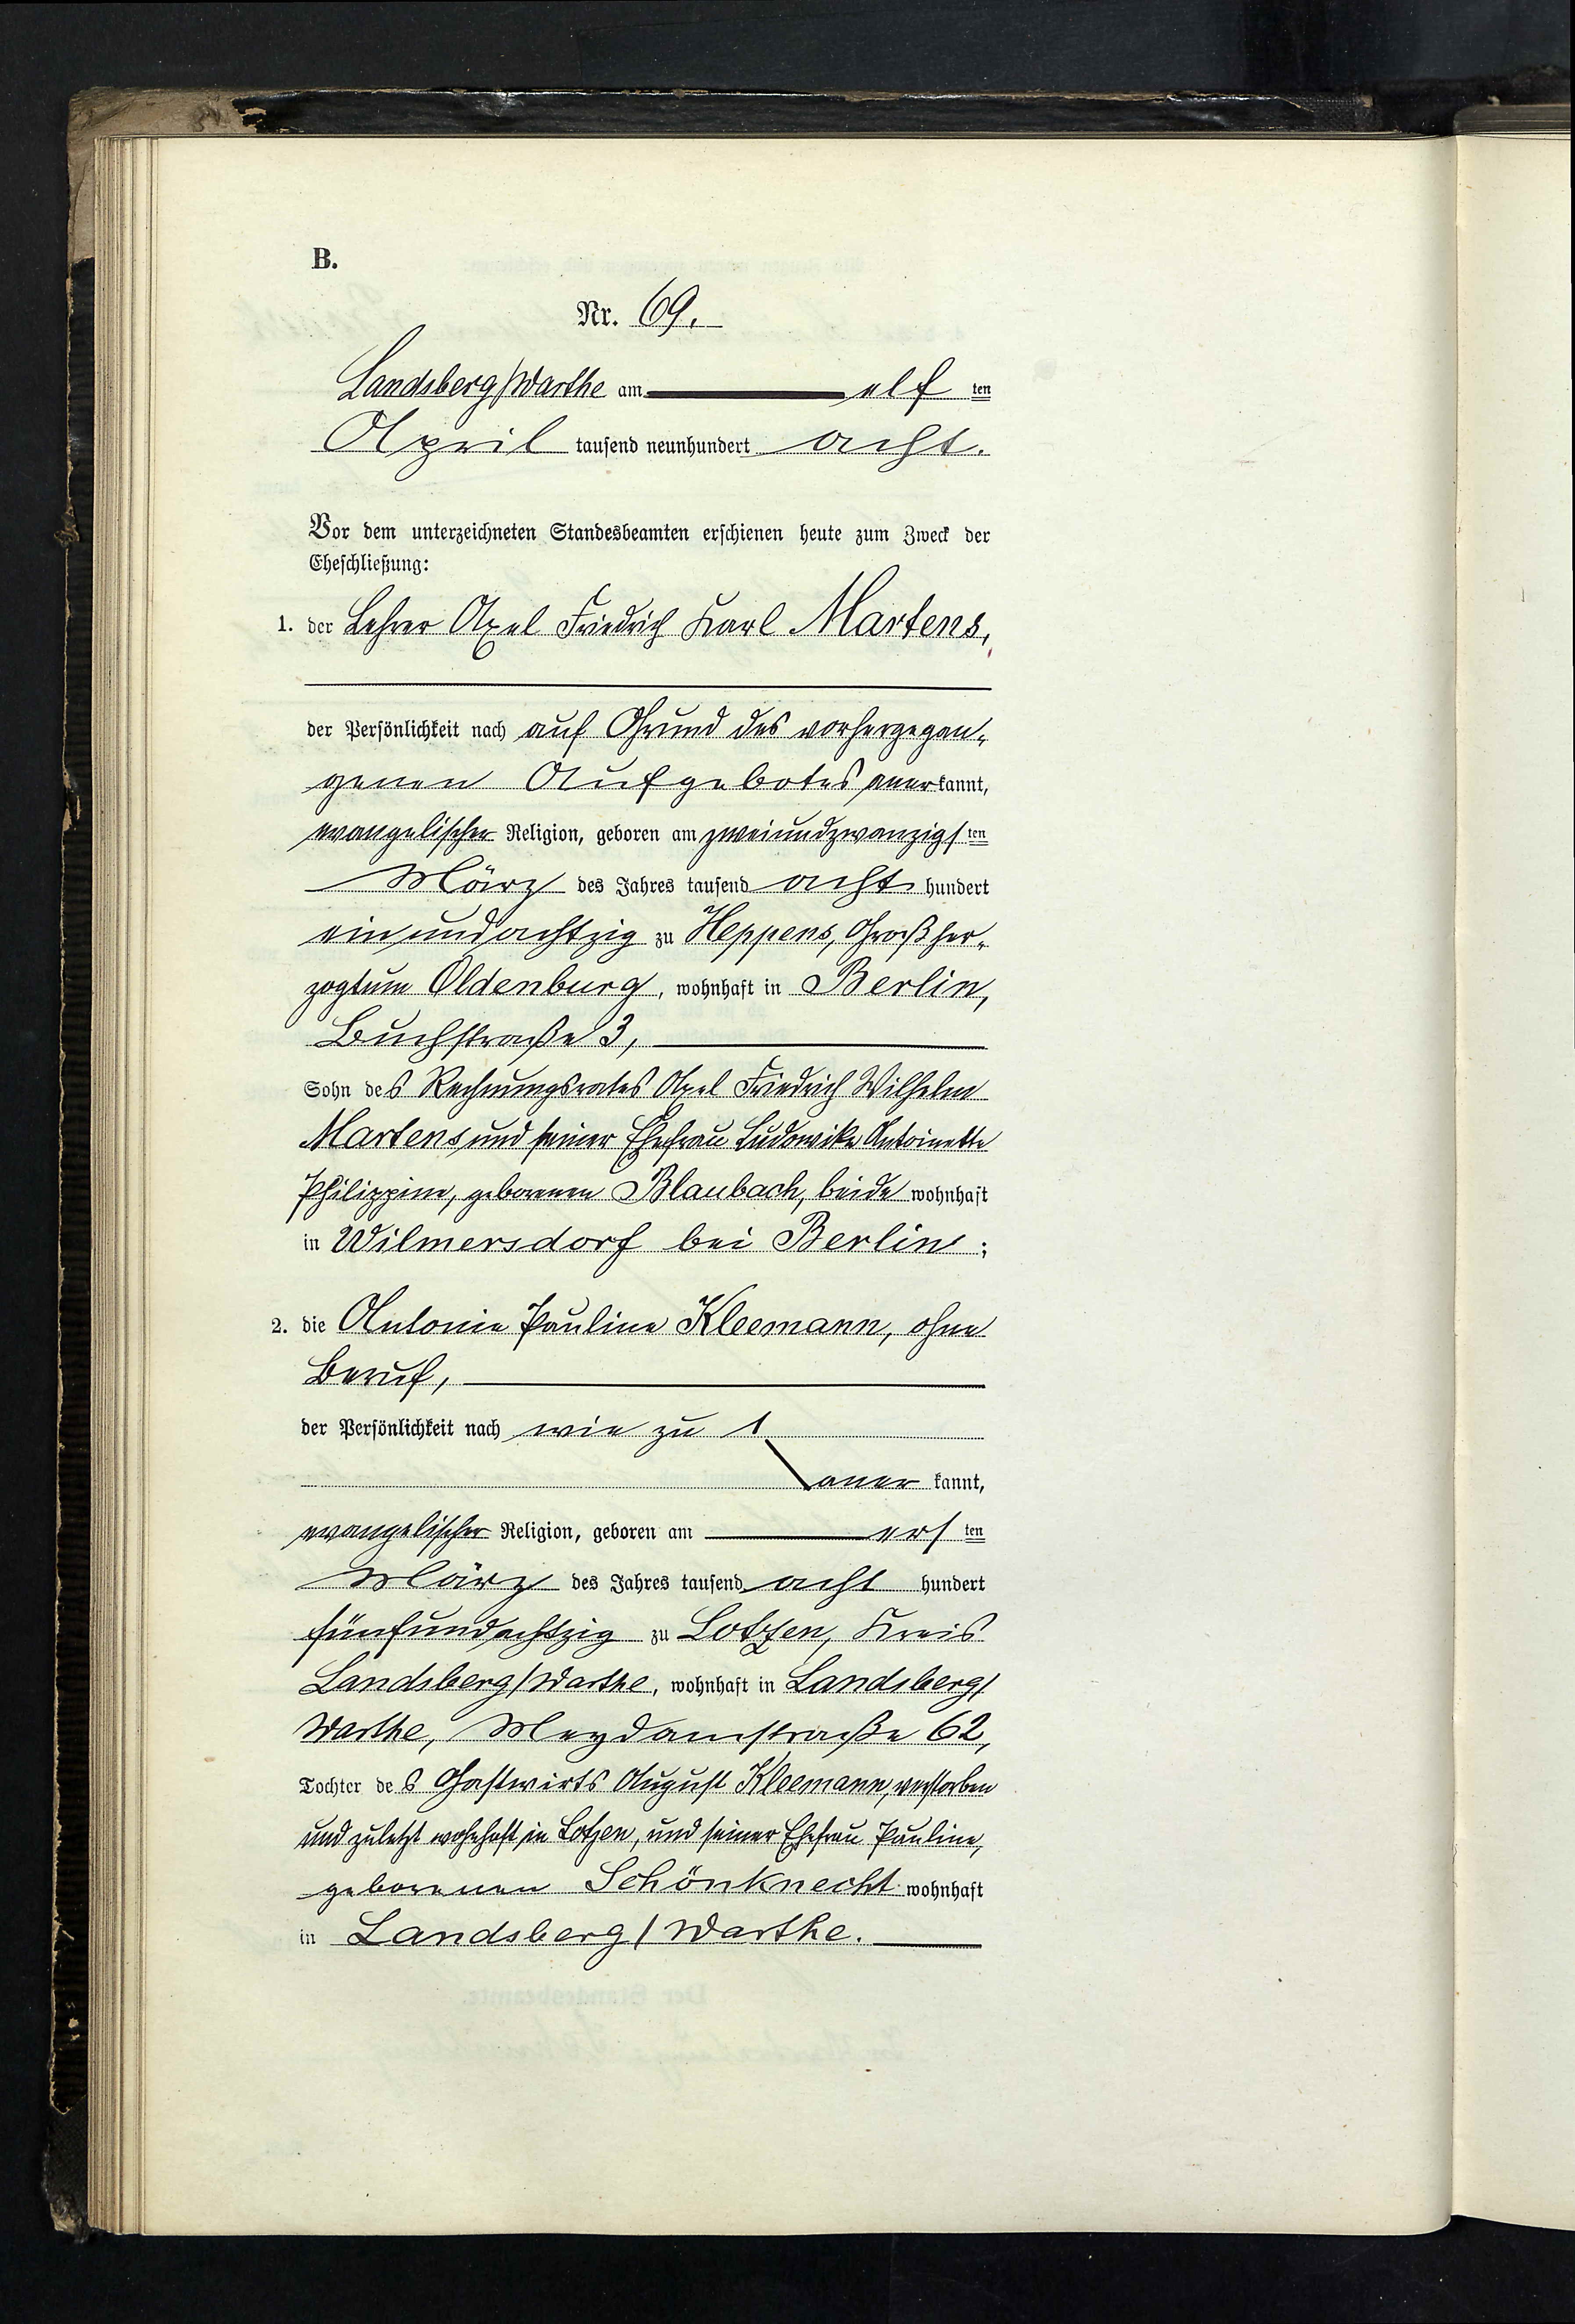 B.
Nr. 69.
Landsberg/Warthe am elf ten
April tausend neunhundert acht.
Vor dem unterzeichneten Standesbeamten erschienen heute zum Zweck der
Eheschließung:
1. der Lehrer Axel Friedrich Karl Martens,
der Persönlichkeit nach auf Grund des vorhergegan-
genen Aufgebotes anerkannt,
evangelischer Religion, geboren am zweiundzwanzigsten
März des Jahres tausend acht hundert
einundachtzig zu Heppens, Großher-
zogtum Oldenburg, wohnhaft in Berlin,
Buchstraße 3,
Sohn des Rechnungsrates Axel Friedrich Wilhelm
Martens und seiner Ehefrau Ludowike Antoinette
Philippine, geborenen Blaubach, beide wohnhaft
in Wilmersdorf bei Berlin;
2. die Antonie Pauline Kleemann, ohne
Beruf,
der Persönlichkeit nach wie zu 1
aner kannt,
evangelischer Religion, geboren am ersten
März des Jahres tausend acht hundert
fünfundachtzig zu Lotzen, Kreis
Landsberg/Warthe, wohnhaft in Landsberg/
Warthe, Meydamstraße 62,
Tochter des Gastwirts August Kleemann, verstorben
und zuletzt wohnhaft in Lotzen, und seiner Ehefrau Pauline,
geborenen Schönknecht wohnhaft
in Landsberg/Warthe.